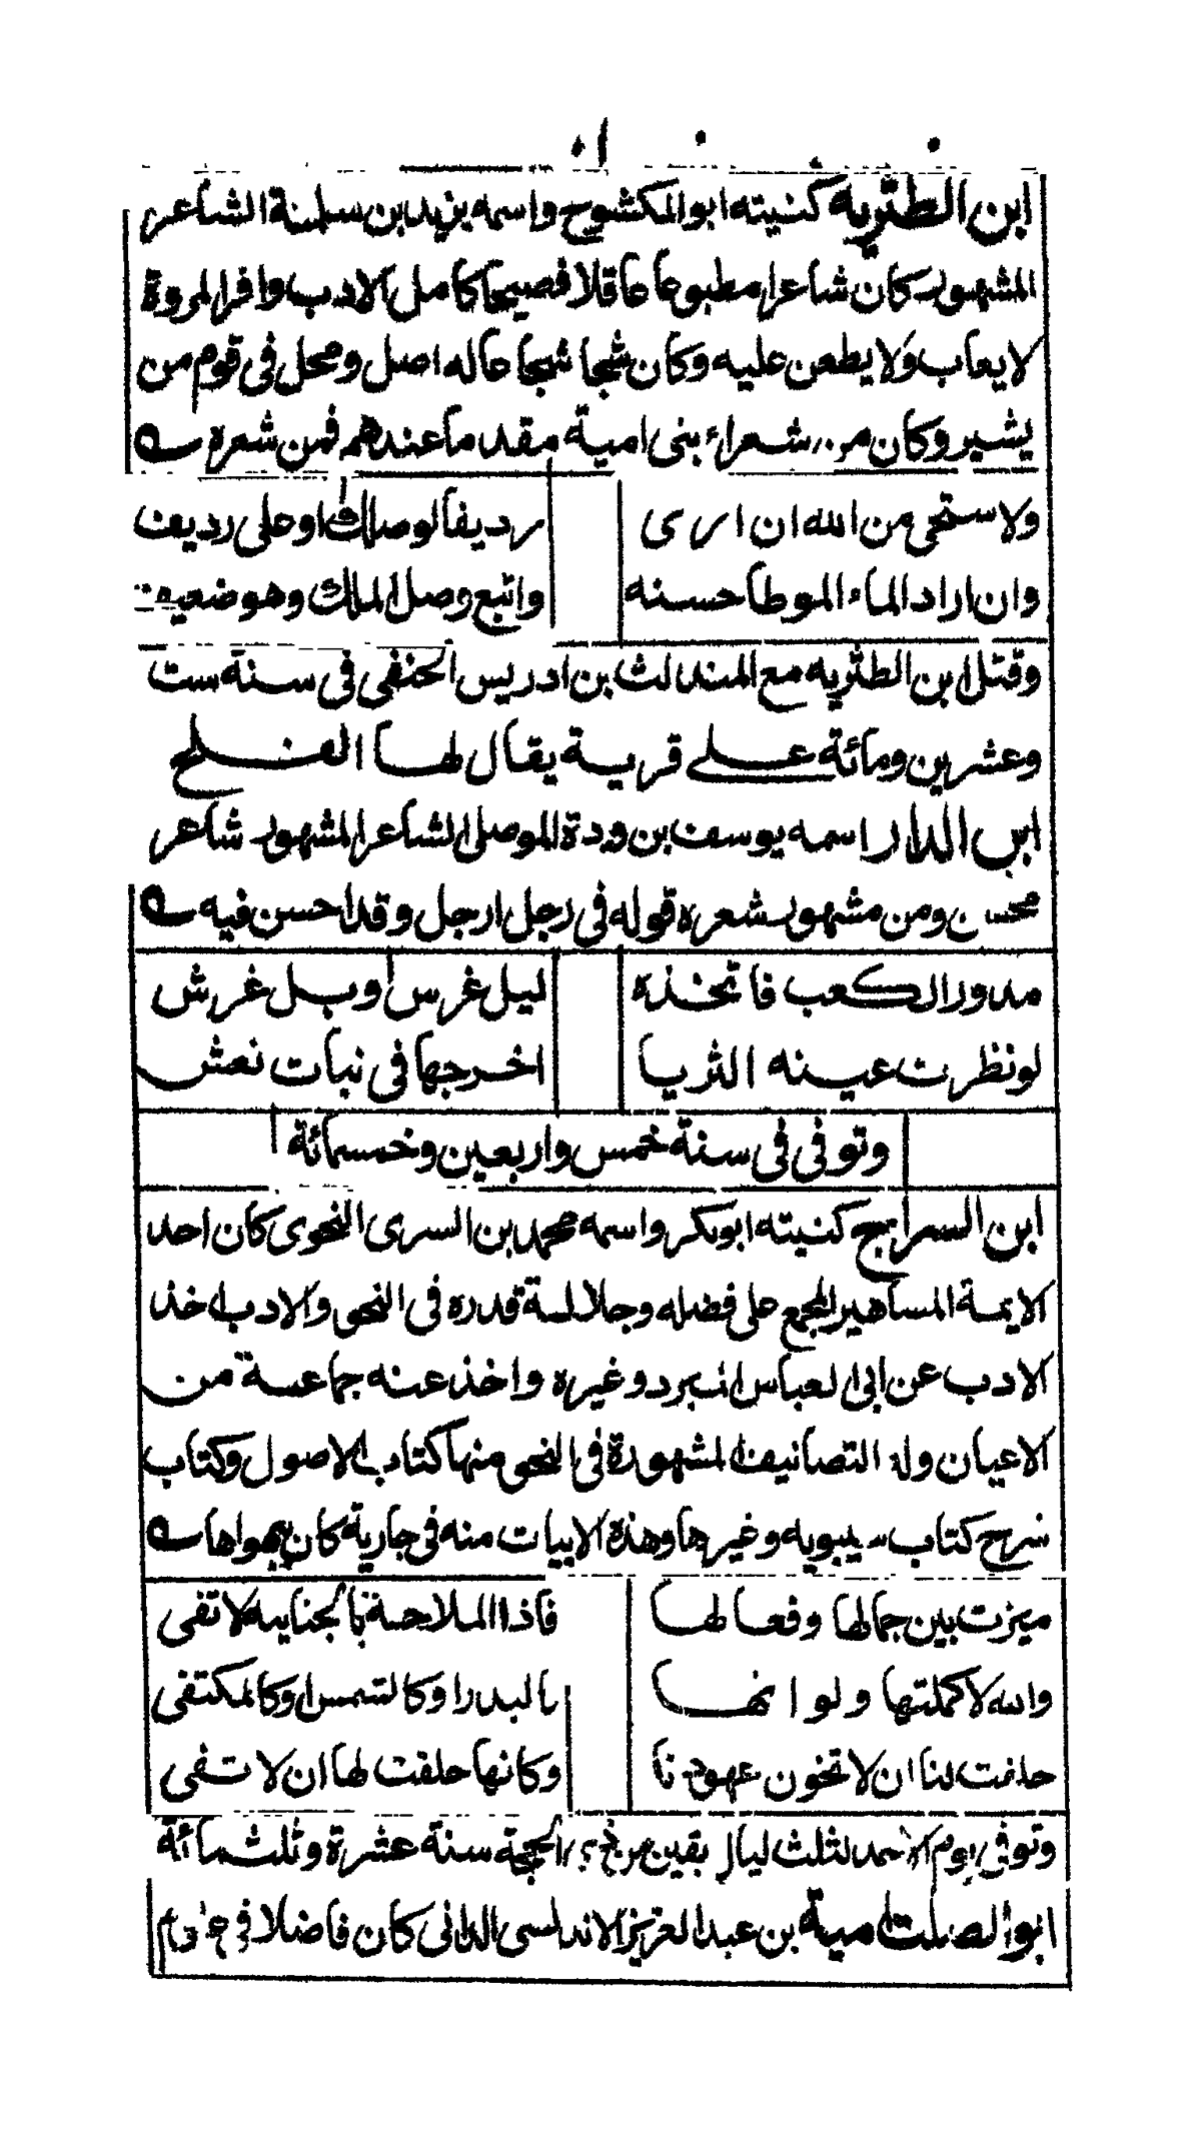 ابن الطثريه كنيته ابو المكشوح واسمه يزيد بن سلمة الشاعر
المشهور كان شاعرا مطبوعا عاقلا فصيحا كامل الادب وافر المروة
لا يعاب ولا يطعن عليه وكان شجا شجاعا له اصل ومحل في قوم من
يشير وكان من شعراء بنى امية مقدما عندهم فمن شعره
ولا ستحى من الله ان ارى رديفا لوصلك او على رديف
وان اراد الماء الموطا حسنه واتبع وصل الملك وهو ضعيف
وقتل ابن الطثريه مع المندلث بن ادريس الحنفى فى سنة ست
وعشرين ومائة على قرية يقال لها الفلج
ابن الدار اسمه يوسف بن درة الموصلى الشاعر المشهور شاعر
محسن ومن مشهور شعره قوله فى رجل ارجل وقد احسن فيه
مدور الكعب فاتخذه ليل غرس اوبل غرش
لو نظرت عينه الثريا اخرجها فى نبات نعش
وتوفى فى سنة خمس واربعين وخمسمائة
ابن السراج كنيته ابو بكر واسمه محمد بن السرى النحوى كان احد
الايمة المساهير المجمع على فضله وجلالة قدره فى النحو والادب اخذ
الادب عن ابى العباس المبرد وغيره واخذ عنه جماعة من
الاعيان وله التصانيف المشهورة فى النحو منها كتاب الاصول وكتاب
شرح كتاب سيبويه وغيرها وهذه الابيات منه فى جارية كان يهواها
ميزت بين جمالها وفعالها فاذا الملاحة بالجنايه لا تفى
والله لا كملتها ولو انها بالبدر او كالشمس او كالمكتفى
حلفت لنا ان لا تخون عهودنا وكانها حلفت لها ان لا تفى
وتوفى يوم الاحد لثلث ليال بقين من ذى الحجة سنة عشرة وثلثمائة
ابو الصلت امية بن عبد العزيز الاندلسى الدانى كان فاضلا فى